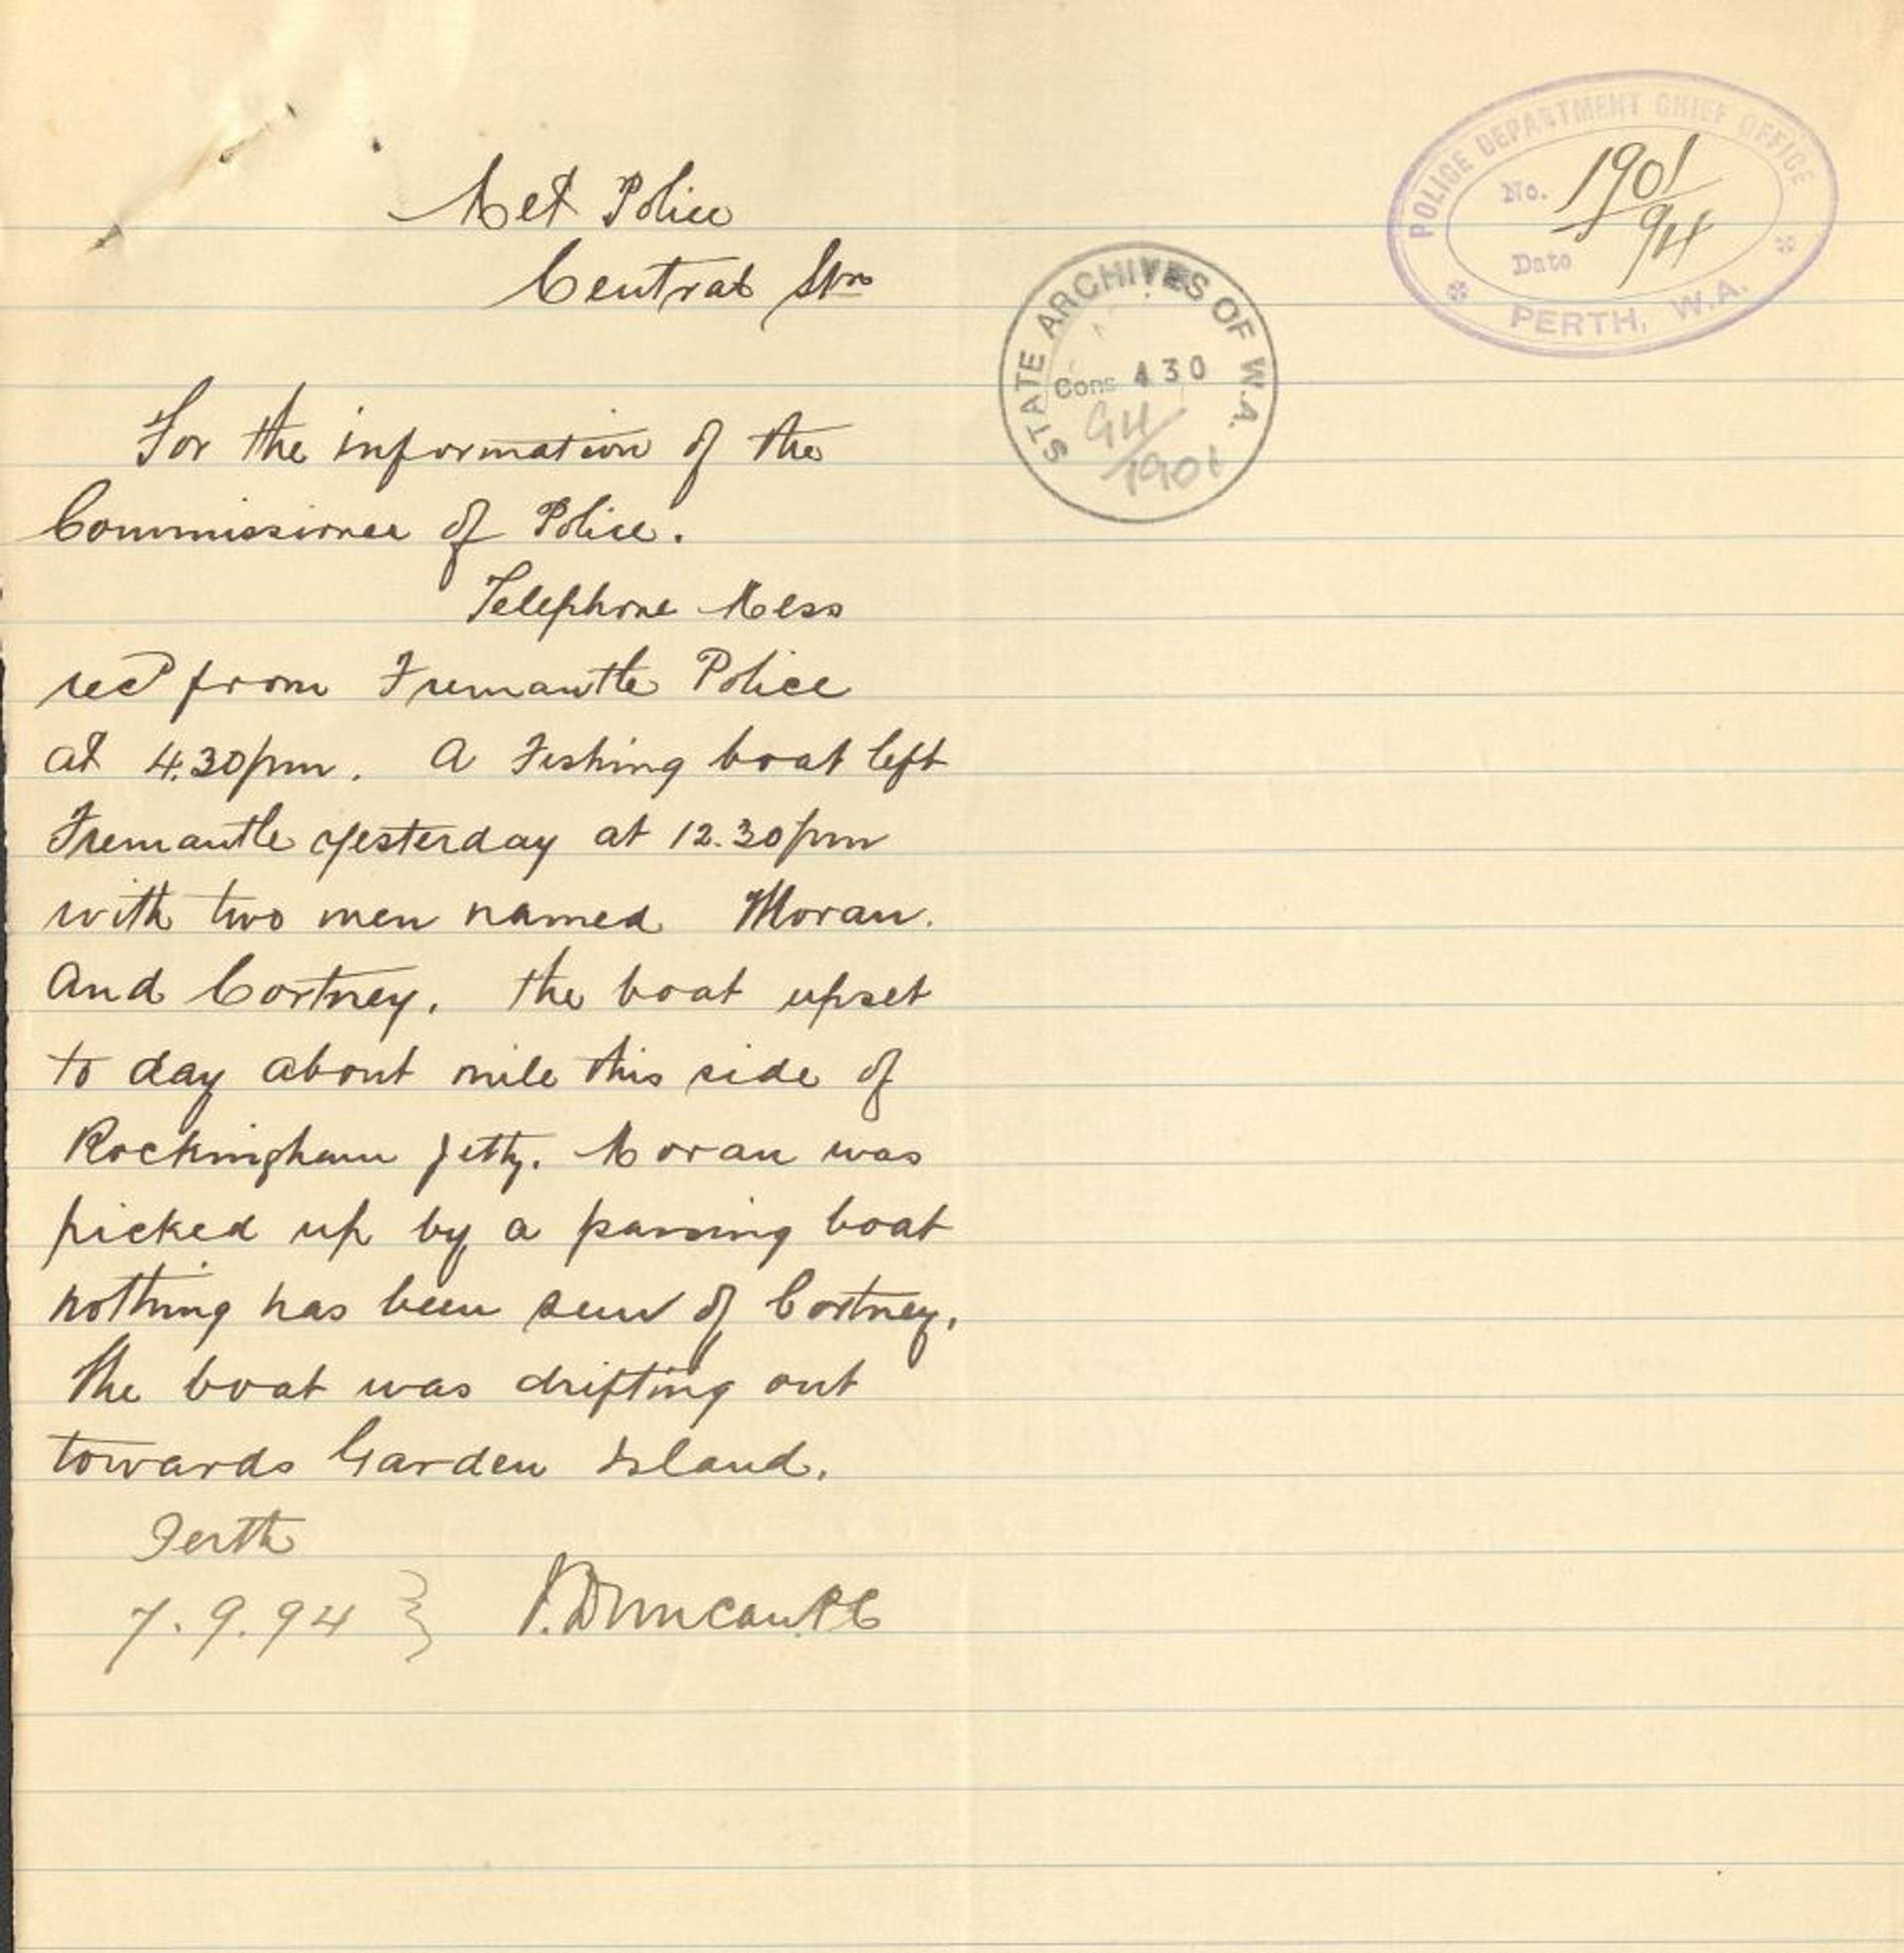 Met Police
Central Stn
POLICE DEPARTMENT CHIEF OFFICE
No. 1901/94
Date
PERTH, W.A.
STATE ARCHIVES OF W.A.
Cons 430
94/1901
For the information of the
Commissioner of Police.
Telephone Mess
recd from Fremantle Police
at 4.30pm. A Fishing boat left
Fremantle yesterday at 12.30pm
with two men named Moran.
And Cortney. the boat upset
to day about mile this side of
Rockingham Jetty. Moran was
picked up by a passing boat
nothing has been seen of Cortney.
The boat was drifting out
towards Garden Island.
Perth
7.9.94 } J. Duncan. PC